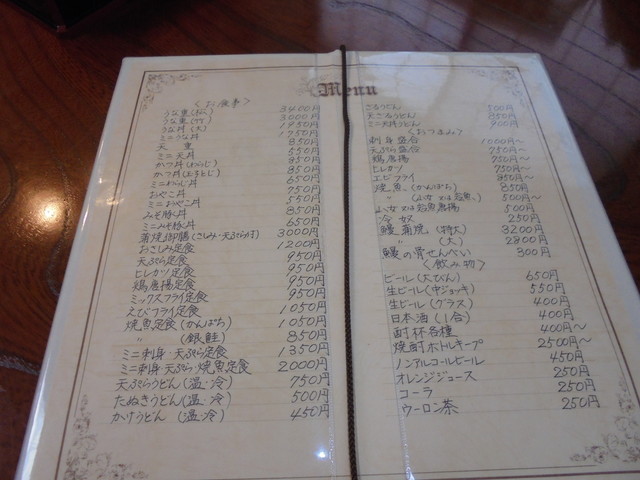 Menu
〈お食事〉
うな重(松) 3400円
うな重(竹) 3000円
うな丼(大) 1950円
ミニうな丼 1750円
天重 850円
ミニ天丼 550円
かつ丼(わらじ) 850円
かつ丼(おろし) 850円
ミニわらじ丼 650円
おやこ丼 750円
ミニおやこ丼 550円
みそ豚丼 850円
ミニみそ豚丼 650円
蒲焼御膳(さしみ・天ぷら付) 3000円
おさしみ定食 1200円
天ぷら定食 950円
ヒレカツ定食 950円
鶏唐揚定食 950円
ミックスフライ定食 950円
えびフライ定食 1050円
焼魚定食(かんぱち) 1050円
〃 (銀鮭) 850円
ミニ刺身・天ぷら定食 1350円
ミニ刺身・天ぷら・焼魚定食 2000円
天ぷらうどん(温・冷) 750円
たぬきうどん(温・冷) 500円
かけうどん(温・冷) 450円
ざるうどん 500円
天ざるうどん 850円
ミニ天丼うどん 900円
〈おつまみ〉
刺身盛合 1000円〜
天ぷら盛合 750円〜
鶏唐揚 750円〜
ヒレカツ 750円〜
エビフライ 850円〜
焼魚(かんぱち) 850円
500円〜
550円〜
冷奴 250円
鰻蒲焼(特大) 3200円
〃 (大) 2800円
鰻の骨せんべい 300円
〈飲み物〉
ビール(大びん) 650円
生ビール(中ジョッキ) 550円
生ビール(グラス) 400円
日本酒(1合) 400円
酎杯各種 400円〜
焼酎ボトルキープ 2500円〜
ノンアルコールビール 450円
オレンジジュース 250円
コーラ 250円
ウーロン茶 250円